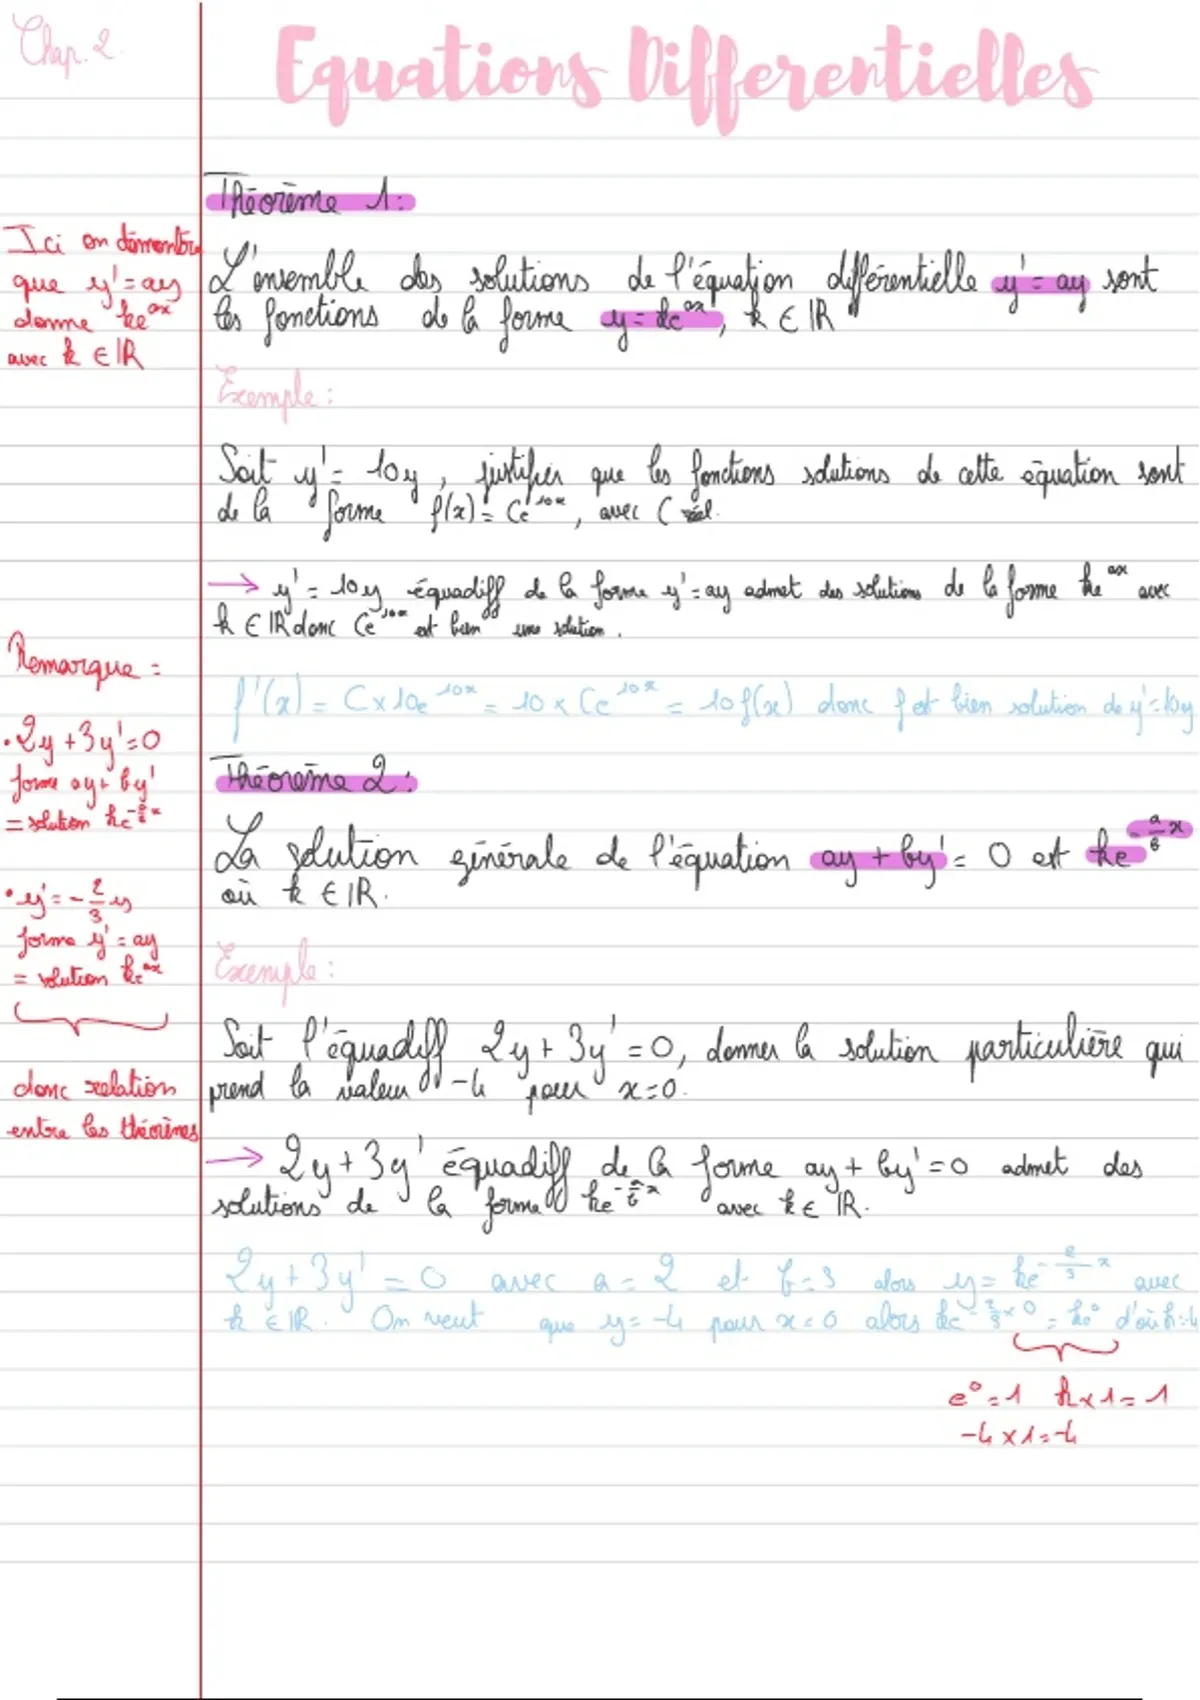 Chap. 2
Equations Differentielles
Théorème 1:
Ici on démontre
que y' = ay
donne ke^ax
avec k ∈ ℝ
L'ensemble des solutions de l'équation différentielle y' = ay sont
les fonctions de la forme y = ke^ax, k ∈ ℝ
Exemple :
Soit y' = 10y, justifier que les fonctions solutions de cette équation sont
de la forme f(x) = Ce^10x, avec C réel.
→ y' = 10y équadiff de la forme y' = ay admet des solutions de la forme ke^ax avec
k ∈ ℝ donc Ce^10x est bien une solution.
f'(x) = C×10e^10x = 10 × Ce^10x = 10 f(x) donc f est bien solution de y' = 10y
Remarque :
• 2y + 3y' = 0
forme ay + by'
= solution ke^-a/b x
• y' = -2/3 y
forme y' = ay
= solution ke^ax
donc relation
entre les théorèmes
Théorème 2 :
La solution générale de l'équation ay + by' = 0 est ke^-a/b x
où k ∈ ℝ.
Exemple :
Soit l'équadiff 2y + 3y' = 0, donner la solution particulière qui
prend la valeur -4 pour x = 0.
→ 2y + 3y' équadiff de la forme ay + by' = 0 admet des
solutions de la forme ke^-a/b x avec k ∈ ℝ.
2y + 3y' = 0 avec a = 2 et b = 3 alors y = ke^-2/3 x avec
k ∈ ℝ. On veut que y = -4 pour x = 0 alors ke^-2/3 × 0 = ke^0 d'où k = -4
e^0 = 1 k × 1 = 1
-4 × 1 = -4